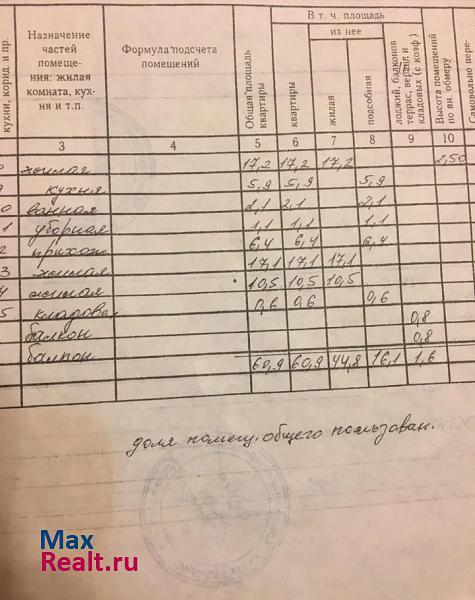 кухни, корид. и пр.
Назначение
частей
помеще-
ния: жилая
комната, кух-
ня и т.п.
Формула подсчета
помещений
Общая площадь
квартиры
В т. ч. площадь
из нее
квартиры
жилая
подсобная
лоджий, балконов
террас, веранд и
кладовых (с коэф)
Высота помещений
по вн. обмеру
Самовольно пере-
3 4 5 6 7 8 9 10
жилая 17,2 17,2 17,2 2,50
кухня 5,9 5,9 5,9
0 ванная 2,1 2,1 2,1
1 уборная 1,1 1,1 1.1
2 прихож 6,4 6,4 6,4
3 жилая 17,1 17,1 17,1
4 жилая 10,5 10,5 10,5
5 кладовая 0,6 0,6 0,6
балкон 0,8
балкон 0,8
60,9 60,9 44,8 16,1 1,6
доля помещ. общего пользован.
Max
Realt.ru